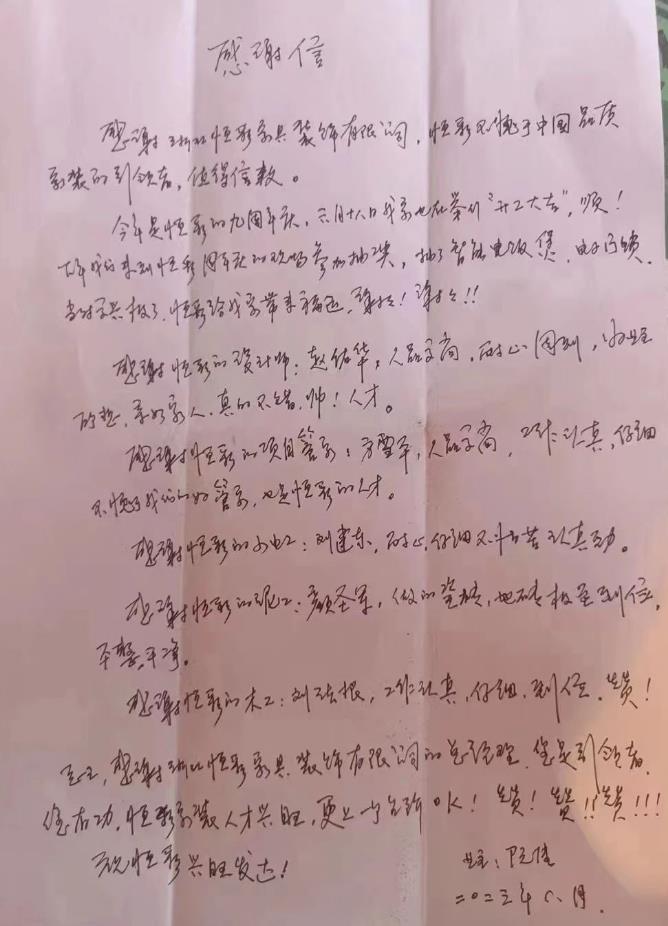 感谢信
感谢浙江恒彩家具装饰有限公司，恒彩不愧于中国品质
家装的引领者，值得信赖。
今年是恒彩的九周年庆，六月十八日我家也在举行“开工大吉”，顺！
我们来到恒彩周年庆的现场参加抽奖，抽了智能电饭煲，电子门锁，
当时高兴极了，恒彩给我家带来福运，谢谢！谢谢！！
感谢恒彩的设计师：赵佑华，人品高尚，耐心周到，
的想，亲如家人，真的不错，帅！人才。
感谢恒彩的项目管家：方雪军，人品高尚，工作认真，仔细
不愧于我们的好管家，也是恒彩的人才。
感谢恒彩的水电工：刘建东，耐心，仔细又不怕苦认真干。
感谢恒彩的泥工：颜圣军，做的瓷砖，地砖极至到位，
平整，干净。
感谢恒彩的木工：刘法根，工作认真，仔细，到位，赞！
感谢浙江恒彩家具装饰有限公司的总经理，您是引领者，
您有功，恒彩家装人才兴旺，更上一台阶OK！赞！赞！！赞！！！
祝恒彩兴旺发达！
业主：
二〇二三年八月.